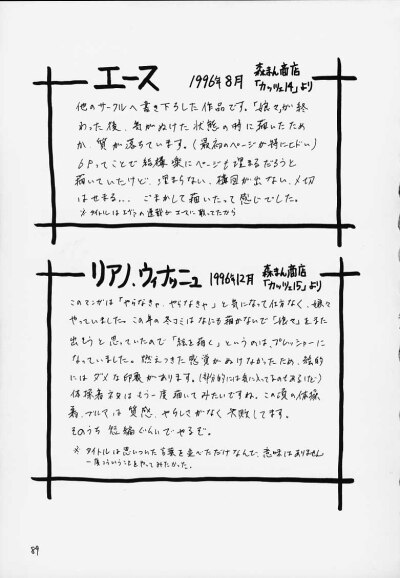 エース 1996年8月 森まん商店「カッツェ14」より
他のサークルへ書き下ろした作品です。「娘々」が終
わった後、気がぬけた状態の時に描いたため
か、質が落ちています。(最初のページが特にヒドい)
6Pってことで結構楽にページも埋まるだろうと
描いていたけど、埋まらない、構図が出ない、〆切
はせまる… ごまかして描いたって感じでした。
※タイトルはエヴァの連載がエースに載ってたから
リアノ.ウィナッニュ 1996年12月 森まん商店「カッツェ15」より
このマンガは「やらなきゃ、やらなきゃ」と気になって仕方なく、嫌々
やっていました。この年の冬コミはなにも描かないで「娘々」をまた
出そうと思っていたので「絵を描く」というのは、プレッシャーに
なっていました。燃えつきた感覚がぬけなかったため、絵的
にはダメな印象があります。(部分的には気に入ってるのもあるけど)
体操着少女はもう一度描いてみたいですね。この頃の体操
着、ブルマは質感、やらしさがなく失敗してます。
そのうち短編ぐらいでやるぞ。
※タイトルは思いついた言葉を並べただけなんで、意味はありません
一度こういうことをやってみたかった。
89